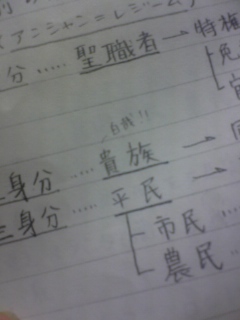 アンシャン=レジーム
分 ..... 聖職者 → 特権
自我!!
身分 ... 貴族 →
三身分 ..... 平民 →
市民 ...
農民 ...